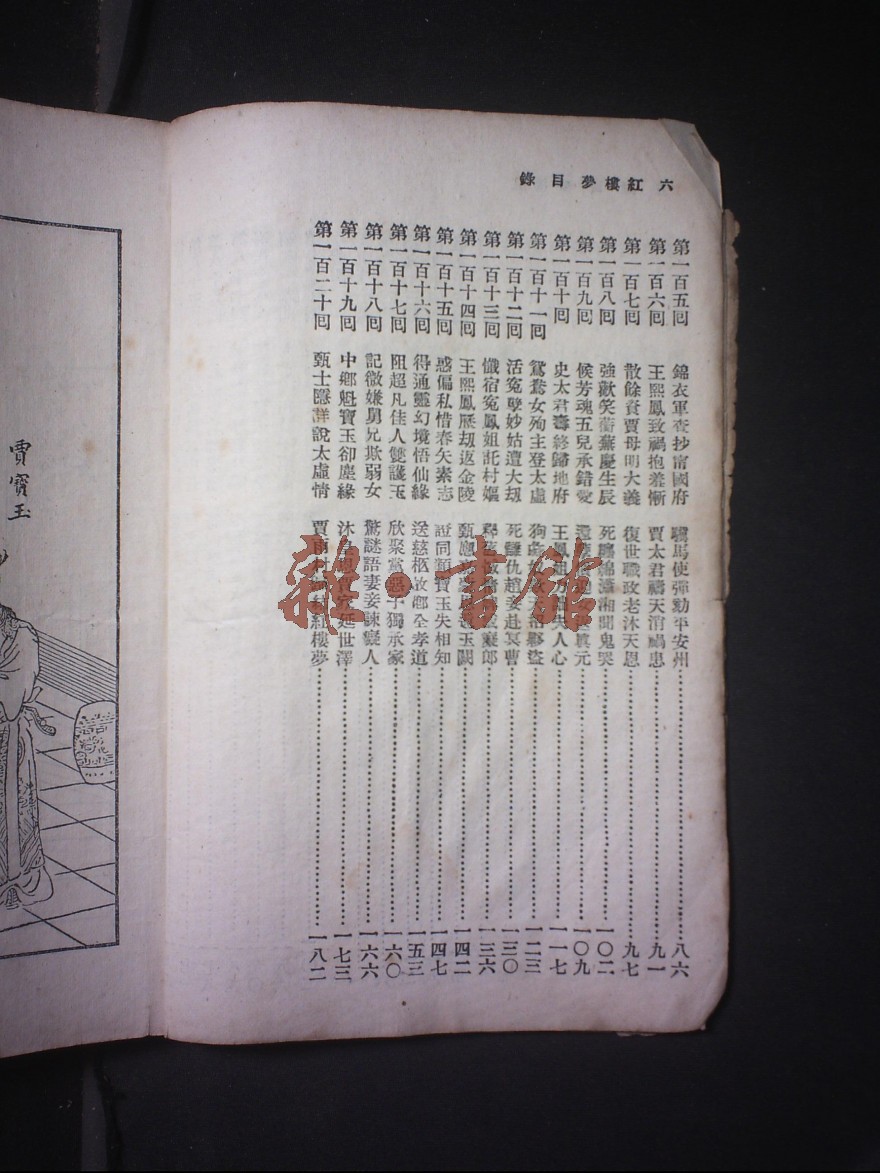 六　紅樓夢目錄
第一百五回　錦衣軍查抄甯國府　驄馬使彈劾平安州……八六
第一百六回　王熙鳳致禍抱羞慚　賈太君禱天消禍患……九一
第一百七回　散餘資賈母明大義　復世職政老沐天恩……九七
第一百八回　強歡笑蘅蕪慶生辰　死纏綿瀟湘聞鬼哭……一〇二
第一百九回　候芳魂五兒承錯愛　還　　　　　眞元……一〇九
第一百十回　史太君壽終歸地府　王鳳　　　失人心……一一七
第一百十一回　鴛鴦女殉主登太虛　狗彘奴　天招夥盜……一二三
第一百十二回　活冤孽妙姑遭大刧　死讎仇趙妾赴冥曹……一三〇
第一百十三回　懺宿冤鳳姐託村嫗　釋　　　　　郎……一三六
第一百十四回　王熙鳳歷刧返金陵　甄應　　　玉闕……一四二
第一百十五回　惑偏私惜春矢素志　證同類寶玉失相知……一四七
第一百十六回　得通靈幻境悟仙緣　送慈柩故鄉全孝道……一五三
第一百十七回　阻超凡佳人雙護玉　欣聚黨惡子獨承家……一六〇
第一百十八回　記微嫌舅兄欺弱女　驚謎語妻妾諫癡人……一六六
第一百十九回　中鄉魁寶玉卻塵緣　沐皇恩賈家延世澤……一七三
第一百二十回　甄士隱詳說太虛情　賈雨村歸結紅樓夢……一八二
賈寶玉
雜·書館